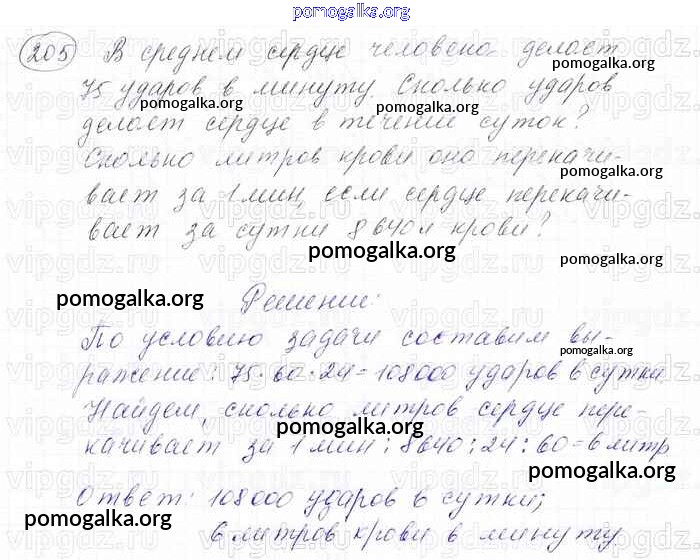 pomogalka.org
205 В среднем сердце человека делает
pomogalka.org
75 ударов в минуту. Сколько ударов
pomogalka.org pomogalka.org
делает сердце в течение суток?
pomogalka.org
Сколько литров крови оно перекачи-
pomogalka.org
вает за 1 мин, если сердце перекачи-
вает за сутки 8640 л крови?
pomogalka.org
pomogalka.org
pomogalka.org
Решение:
По условию задачи составим вы-
pomogalka.org
ражение: 75·60·24=108000 ударов в сутки
Найдем, сколько литров сердце пере-
pomogalka.org
качивает за 1 мин: 8640:24:60=6 литр
pomogalka.org
Ответ: 108000 ударов в сутки;
pomogalka.org
6 литров крови в минуту
pomogalka.org